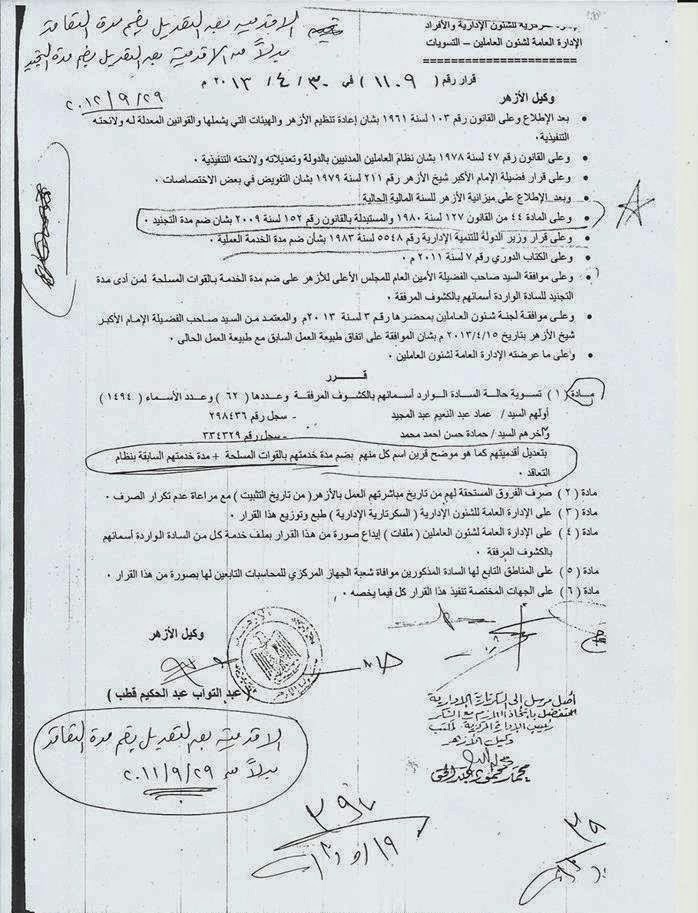 الاقدمية بعد التعديل بضم مدة التعاقد
بدلاً من الاقدمية بعد التعديل بضم مدة التجنيد
٢٠١٢/٩/٢٩
للشئون الإدارية والأفراد
الإدارة العامة لشئون العاملين – التسويات
قرار رقم ( ١١٠٩ ) فى ٣٠ / ٤ / ٢٠١٣ م
وكيل الأزهر
• بعد الإطلاع وعلى القانون رقم ١٠٣ لسنة ١٩٦١ بشان إعادة تنظيم الأزهر والهيئات التي يشملها والقوانين المعدلة له ولائحته
التنفيذية ٠
• وعلى القانون رقم ٤٧ لسنة ١٩٧٨ بشان نظام العاملين المدنيين بالدولة وتعديلاته ولائحته التنفيذية ٠
• وعلى قرار فضيلة الإمام الأكبر شيخ الأزهر رقم ٢١١ لسنة ١٩٧٩ بشان التفويض في بعض الاختصاصات ٠
• وبعد الإطلاع على ميزانية الأزهر للسنة المالية الحالية
• وعلى المادة ٤٤ من القانون ١٢٧ لسنة ١٩٨٠ والمستبدلة بالقانون رقم ١٥٢ لسنة ٢٠٠٩ بشان ضم مدة التجنيد ٠
• وعلى قرار وزير الدولة للتنمية الإدارية رقم ٥٥٤٨ لسنة ١٩٨٣ بشأن ضم مدة الخدمة العملية ٠
• وعلى الكتاب الدوري رقم ٧ لسنة ٢٠١١ م ٠
• وعلى موافقة السيد صاحب الفضيلة الأمين العام للمجلس الأعلى للأزهر على ضم مدة الخدمة بالقوات المسلحة لمن أدى مدة
التجنيد للسادة الواردة أسمائهم بالكشوف المرفقة ٠
• وعلى موافقة لجنة شئون العاملين بمحضرها رقم ٣ لسنة ٢٠١٣م والمعتمد من السيد صاحب الفضيلة الإمام الأكبر
شيخ الأزهر بتاريخ ٢٠١٣/٤/١٥ م بشان الموافقة على اتفاق طبيعة العمل السابق مع طبيعة العمل الحالى ٠
• وعلى ما عرضته الإدارة العامة لشئون العاملين ٠
قـــرر
مادة ( ١ ) تسوية حالة السادة الوارد أسمائهم بالكشوف المرفقة وعددها ( ٦٢ ) وعدد الأسماء ( ١٤٩٤ )
أولهم السيد / عماد عبد النعيم عبد المجيد - سجل رقم ٢٩٨٤٣٦
وآخرهم السيد / حمادة حسن احمد محمد - سجل رقم ٣٣٤٣٢٩
بتعديل أقدميتهم كما هو موضح قرين اسم كل منهم بضم مدة خدمتهم بالقوات المسلحة + مدة خدمتهم السابقة بنظام
التعاقد ٠
مادة ( ٢ ) صرف الفروق المستحقة لهم من تاريخ مباشرتهم العمل بالأزهر( من تاريخ التثبيت ) مع مراعاة عدم تكرار الصرف ٠
مادة ( ٣ ) على الإدارة العامة للشئون الإدارية ( السكرتارية الإدارية ) طبع وتوزيع هذا القرار ٠
مادة ( ٤ ) على الإدارة العامة لشئون العاملين ( ملفات ) إيداع صورة من هذا القرار بملف خدمة كل من السادة الواردة أسمائهم
بالكشوف المرفقة ٠
مادة ( ٥ ) على المناطق التابع لها السادة المذكورين موافاة شعبة الجهاز المركزي للمحاسبات التابعين لها بصورة من هذا القرار ٠
مادة ( ٦ ) على الجهات المختصة تنفيذ هذا القرار كل فيما يخصه ٠
وكيل الأزهر
( عبد التواب عبد الحكيم قطب )
أصل مرسل الى السكرتارية الإدارية
للتفضل باتخاذ اللازم مع الشكر
رئيس الإدارة المركزية لمكتب
وكيل الأزهر
محمد محمود عبد الحق
الاقدمية بعد التعديل بضم مدة التعاقد
بدلاً من ٢٠١١/٩/٢٩
٣٩٤
٣٩